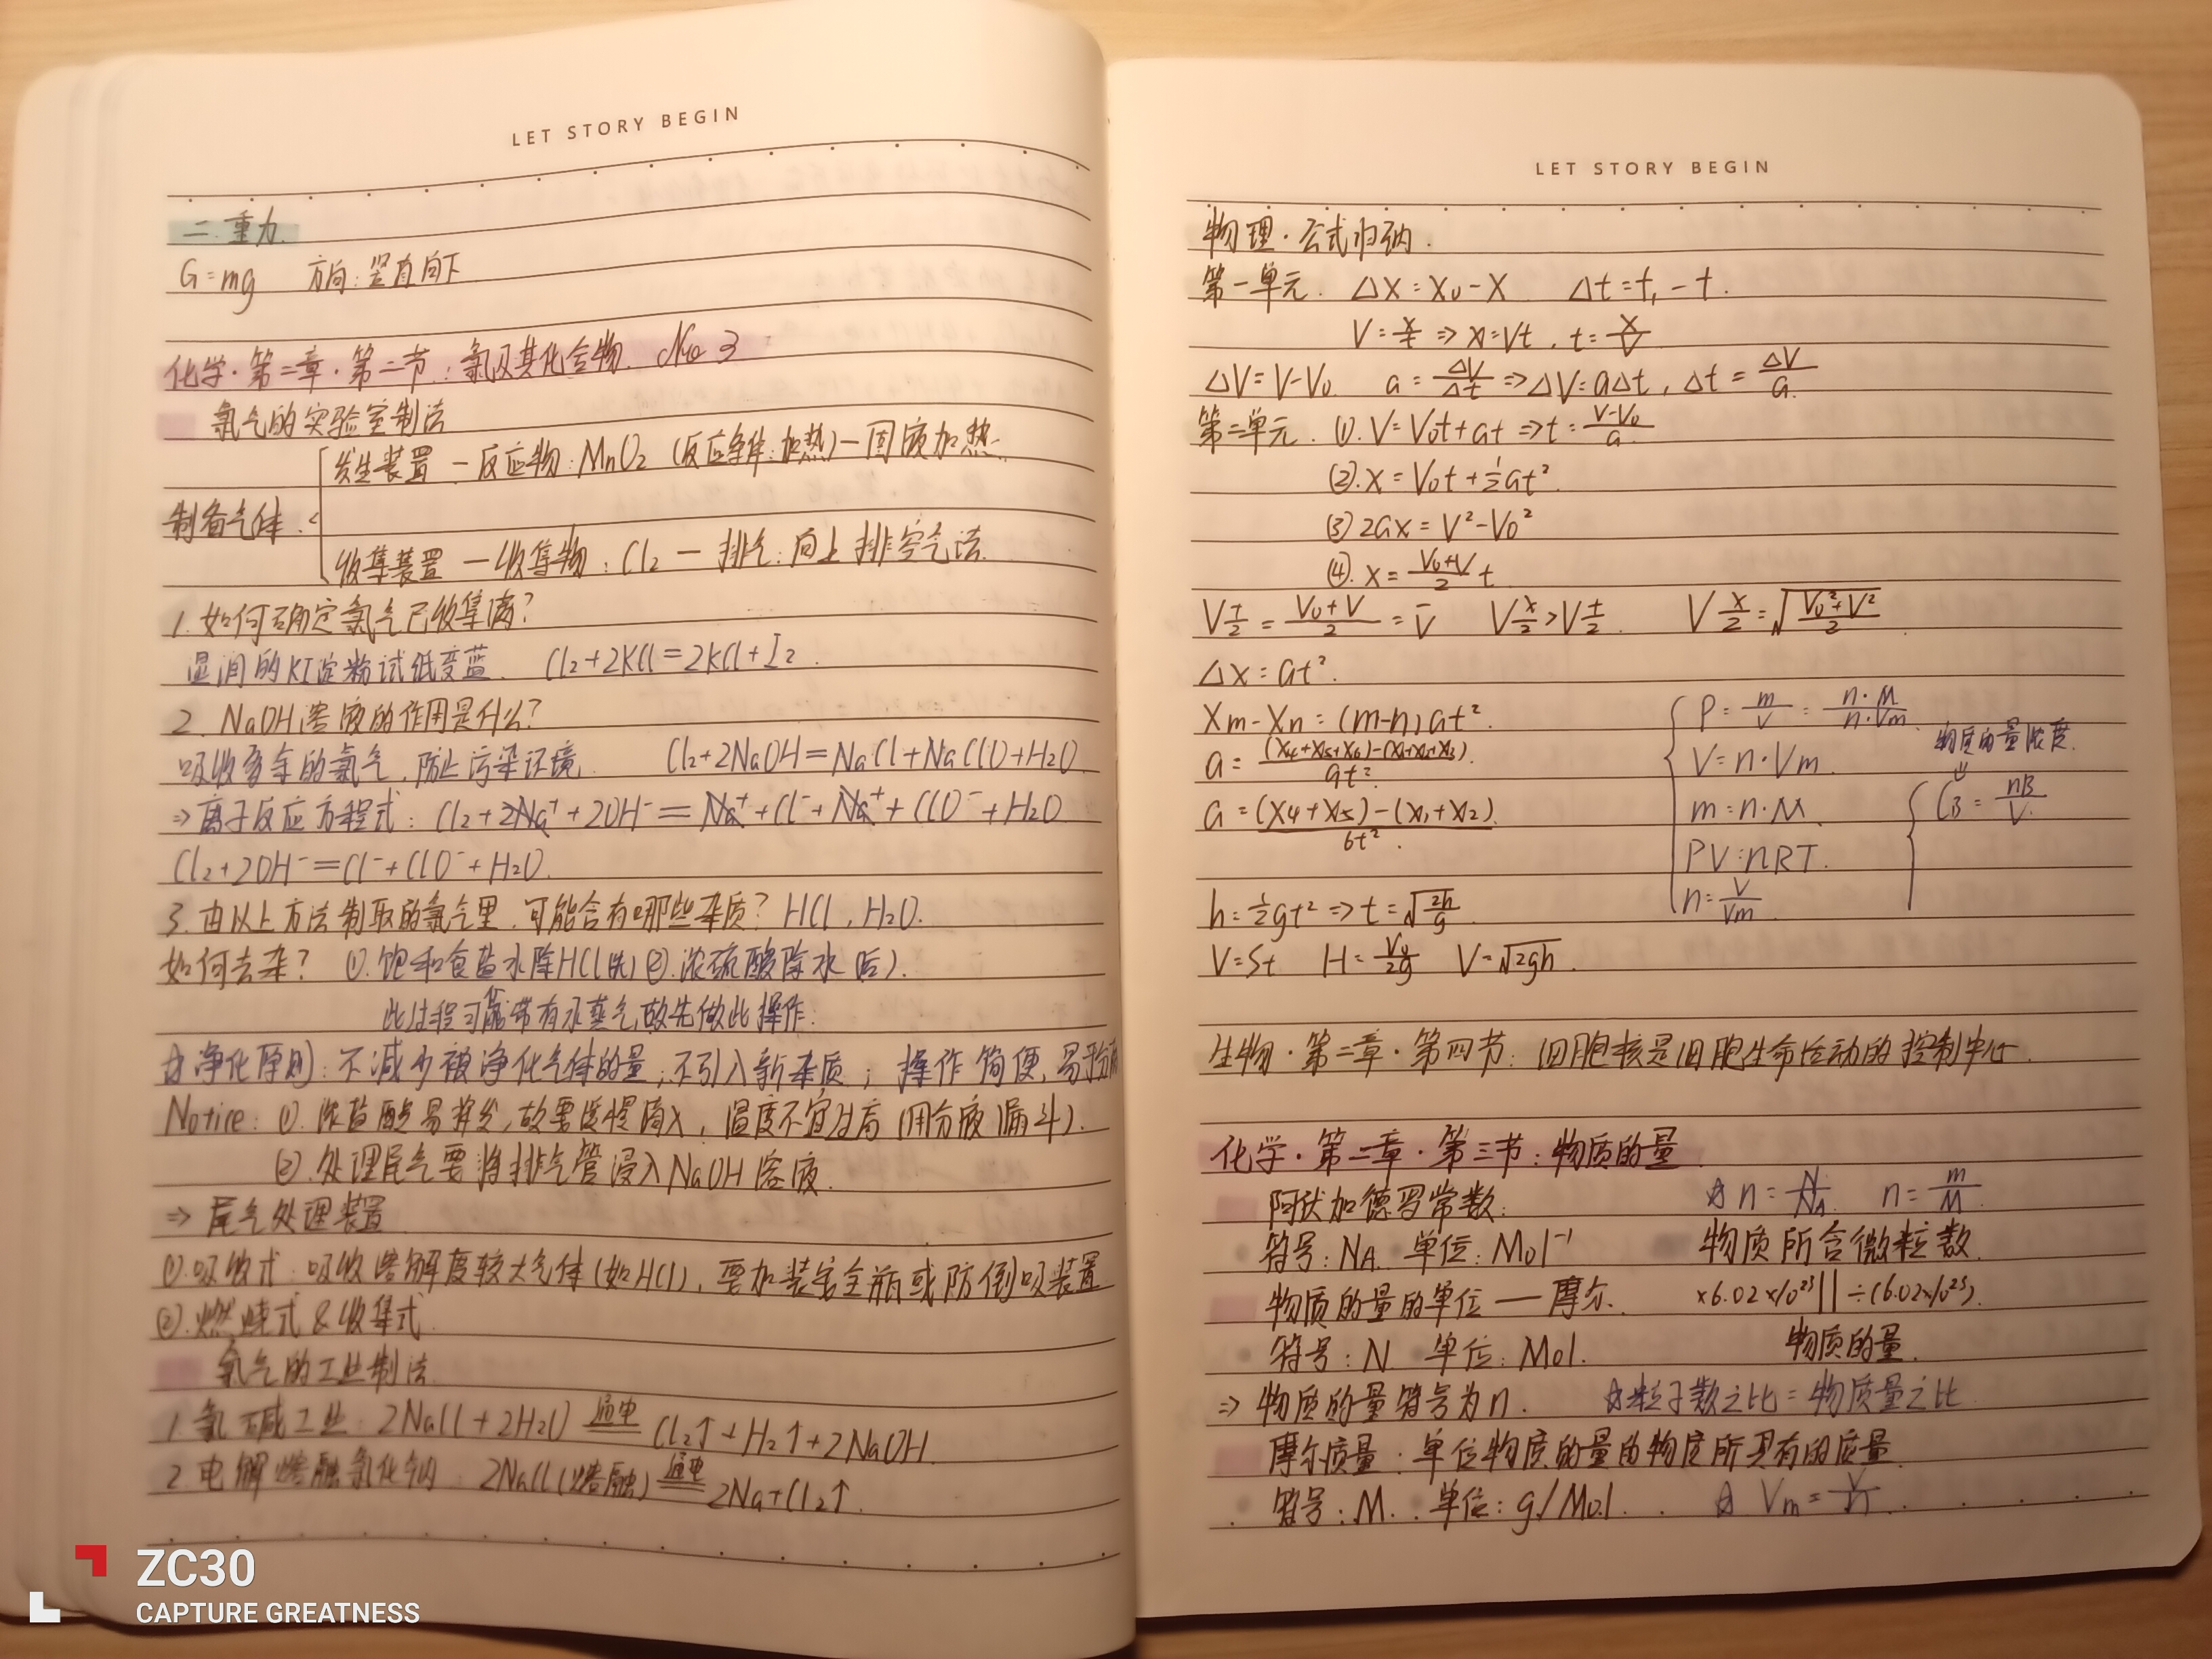 LET STORY BEGIN
二.重力.
G=mg 方向:竖直向下
化学·第二章·第二节:氯及其化合物. No 3
氯气的实验室制法
制备气体.
发生装置 — 反应物:MnO₂ (反应条件:加热)—固液加热.
收集装置 — 收集物:Cl₂ — 排气:向上排空气法.
1.如何确定氯气已收集满?
湿润的KI淀粉试纸变蓝. Cl₂+2KCl=2KCl+I₂.
2.NaOH溶液的作用是什么?
吸收多余的氯气,防止污染环境. Cl₂+2NaOH=NaCl+NaClO+H₂O
⇒离子反应方程式:Cl₂+2Na⁺+2OH⁻=Na⁺+Cl⁻+Na⁺+ClO⁻+H₂O
Cl₂+2OH⁻=Cl⁻+ClO⁻+H₂O.
3.由以上方法制取的氯气里,可能含有哪些杂质? HCl,H₂O.
如何去杂? ①.饱和食盐水除HCl(先) ②.浓硫酸除水(后).
此过程可能带有水蒸气,故先做此操作.
☆净化原则:不减少被净化气体的量;不引入新杂质;操作简便,易于分离
Notire: ①.浓盐酸易挥发,故要缓慢滴入,温度不宜过高(用分液漏斗).
②.处理尾气要将排气管浸入NaOH溶液.
⇒尾气处理装置
①.吸收式:吸收溶解度较大气体(如HCl),要加装安全瓶或防倒吸装置
②.燃烧式&收集式.
氯气的工业制法.
1.氯碱工业:2NaCl+2H₂O 通电 Cl₂↑+H₂↑+2NaOH.
2.电解熔融氯化钠:2NaCl(熔融) 通电 2Na+Cl₂↑.
LET STORY BEGIN
物理·公式归纳.
第一单元. △x=x₀-x △t=t₁-t.
V=x/t⇒x=Vt,t=x/V
△V=V-V₀. a=△V/△t⇒△V=a△t,△t=△V/a.
第二单元. ⑴.V=V₀t+at⇒t=(V-V₀)/a.
⑵.x=V₀t+½at².
⑶2ax=V²-V₀²
⑷.x=(V₀+V)/2 t
V t/2=(V₀+V)/2=V̄ V x/2>V t/2. V x/2=√((V₀²+V²)/2).
△x=at².
Xm-Xn=(m-n)at².
a=((x₄+x₅+x₆)-(x₁+x₂+x₃))/9t².
a=((x₄+x₅)-(x₁+x₂))/6t².
ρ=m/V=n·M/n·Vm.
V=n·Vm.
m=n·M.
PV=nRT.
n=V/Vm.
物质的量浓度.
⇓
CB=nB/V.
h=½gt²⇒t=√(2h/g).
V=St H=V₀/2g V=√2gh.
生物·第二章·第四节:细胞核是细胞生命活动的控制中心.
化学·第二章·第三节:物质的量.
阿伏加德罗常数. ☆n=N/NA. n=m/M.
符号:NA.单位:Mol⁻¹ 物质所含微粒数.
物质的量的单位—摩尔. ×6.02×10²³ || ÷(6.02×10²³).
符号:N.单位:Mol. 物质的量.
⇒物质的量符号为n. ☆粒子数之比=物质量之比.
摩尔质量:单位物质的量的物质所具有的质量.
符号:M.单位:g/Mol. ☆Vm=V/n.
ZC30
CAPTURE GREATNESS